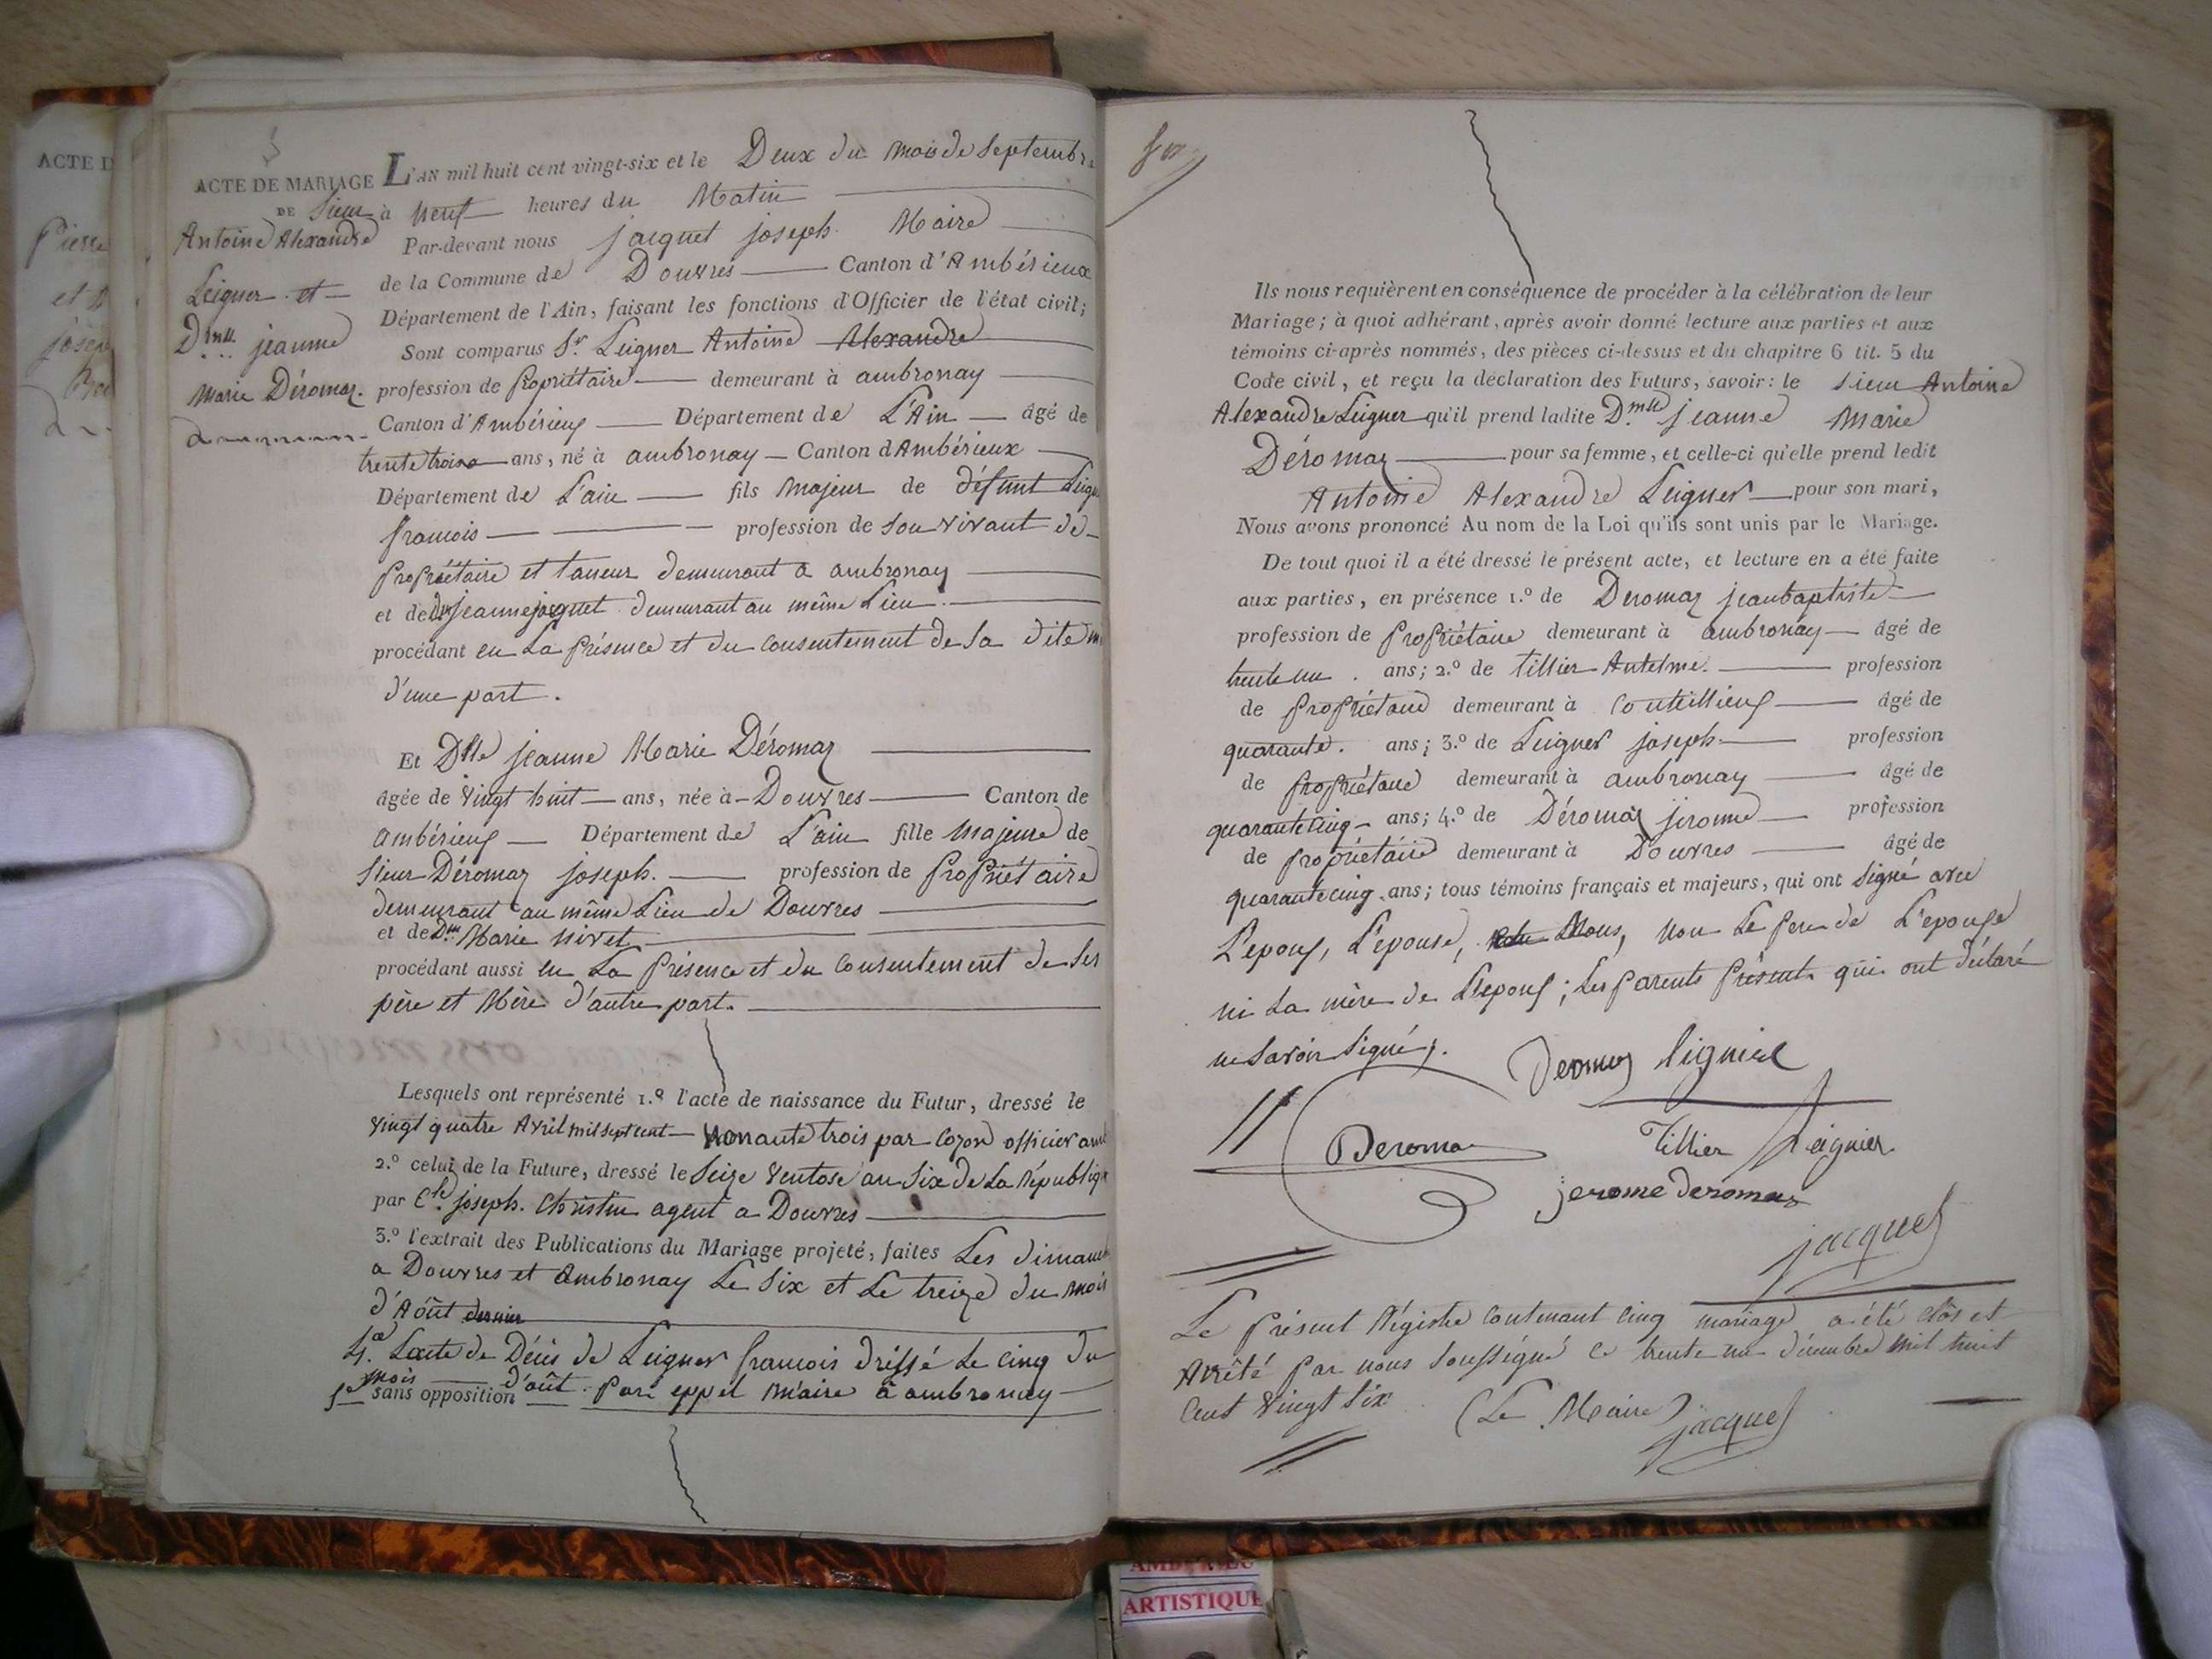 ACTE D
Pierre
et
ACTE DE MARIAGE
DE Sieur
Antoine Alexandre
Leigner et
Dmlle jeanne
Marie Déromaz.
L'AN mil huit cent vingt-six et le Deux du mois de Septembre
à Neuf heures du Matin
Par-devant nous jacquet joseph Maire
de la Commune de Douvres Canton d'Ambérieux
Département de l'Ain, faisant les fonctions d'Officier de l'état civil;
Sont comparus Sr. Leigner Antoine Alexandre
profession de Propriétaire demeurant à ambronay
Canton d'Ambérieux Département de L'Ain âgé de
trente trois ans, né à ambronay Canton d'Ambérieux
Département de L'ain fils Majeur de défunt Leigner
françois profession de Son vivant de
Propriétaire et taneur demeurant a ambronay
et de Dme jeanne jacquet demeurant au même Lieu.
procédant en La Présence et du Consentement de Sa dite
d'une part.
Et Dlle jeanne Marie Déromaz
âgée de Vingt huit ans, née à Douvres Canton de
ambérieux Département de L'ain fille Majeure de
Sieur Déromaz joseph. profession de Propriétaire
demeurant au même Lieu de Douvres
et de Dme Marie nivet
procédant aussi en La Présence et du Consentement de Ses
père et Mère d'autre part.
Lesquels ont représenté 1.º l'acte de naissance du Futur, dressé le
Vingt quatre Avril mil sept cent nonante trois par Cozon officier
2.º celui de la Future, dressé le Seize Ventose an Six de La République
par joseph. Christin agent a Douvres
3.º l'extrait des Publications du Mariage projeté, faites Les dimanches
a Douvres et Ambronay Le Six et Le treize du mois
d'Août dernier
4. L'acte de Décès de Leigner françois dréssé Le cinq du
mois d'août Par eppel Maire à ambronay
sans opposition
Ils nous requièrent en conséquence de procéder à la célébration de leur
Mariage; à quoi adhérant, après avoir donné lecture aux parties et aux
témoins ci-après nommés, des pièces ci-dessus et du chapitre 6 tit. 5 du
Code civil, et reçu la déclaration des Futurs, savoir: le Sieur Antoine
Alexandre Leigner qu'il prend ladite Dmlle jeanne Marie
Déromaz pour sa femme, et celle-ci qu'elle prend ledit
Antoine Alexandre Leigner pour son mari,
Nous avons prononcé Au nom de la Loi qu'ils sont unis par le Mariage.
De tout quoi il a été dressé le présent acte, et lecture en a été faite
aux parties, en présence 1.º de Deromaz jean baptiste
profession de Propriétaire demeurant à ambronay âgé de
trente un ans; 2.º de Tillier Antelme. profession
de Propriétaire demeurant à Coutellieux âgé de
quarante. ans; 3.º de Leigner joseph profession
de Propriétaire demeurant à ambronay âgé de
quarante cinq ans; 4.º de Déromaz jerome profession
de Propriétaire demeurant à Douvres âgé de
quarante cinq ans; tous témoins français et majeurs, qui ont Signé avec
L'epoux, L'épouse, Nous, non Le Pere de L'epouse
ni La mère de L'epoux; Les Parents Présents qui ont déclaré
ne Savoir Signé.
Deromaz Lignier
Deroma
Tillier Leignier
jerome deromaz
jacquet
Le Présent Régistre Contenant cinq mariage a été Clôs et
Arrêté Par nous Soussigné ce trente un décembre mil huit
Cent Vingt Six (Le Maire)
jacquet
ARTISTIQUE